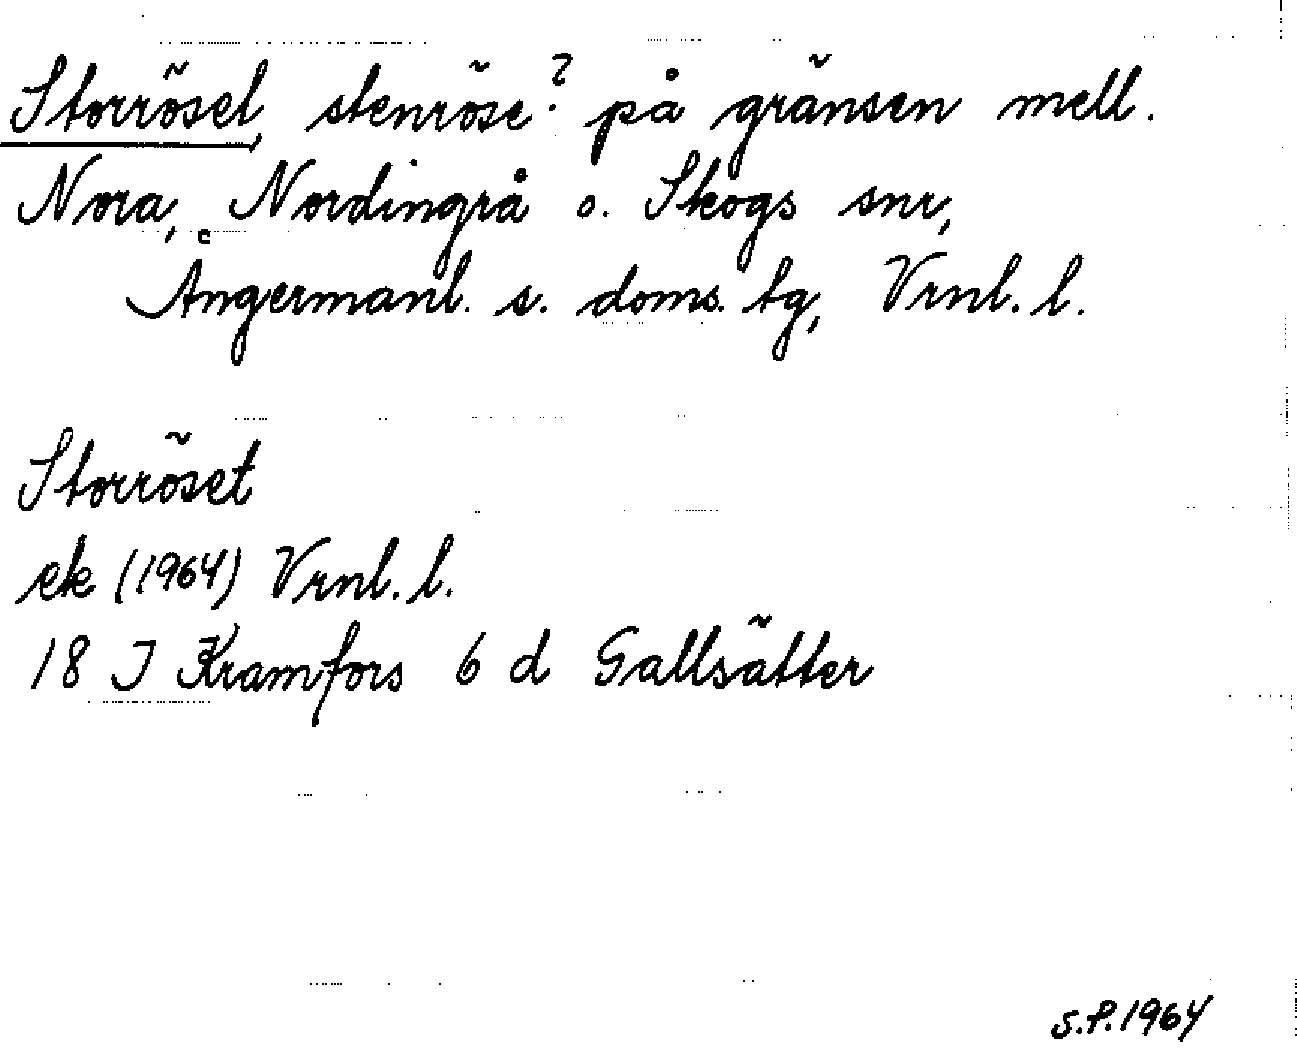 Storröset, stenröse? på gränsen mell.
Nora, Nordingrå o. Skogs snr,
Ångermanl. s. doms. tg, Vrnl. l.
Storröset
ek (1964) Vrnl. l.
18 J Kramfors 6 d Gallsätter
S.P. 1964